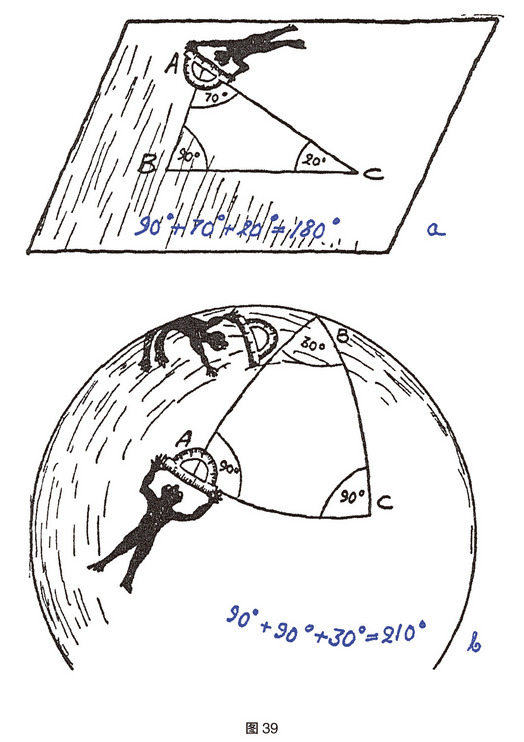 A
70°
B
90°
20°
C
90°+70°+20°=180°
a
B
30°
A
90°
90°
C
90°+90°+30°=210°
b
图 39